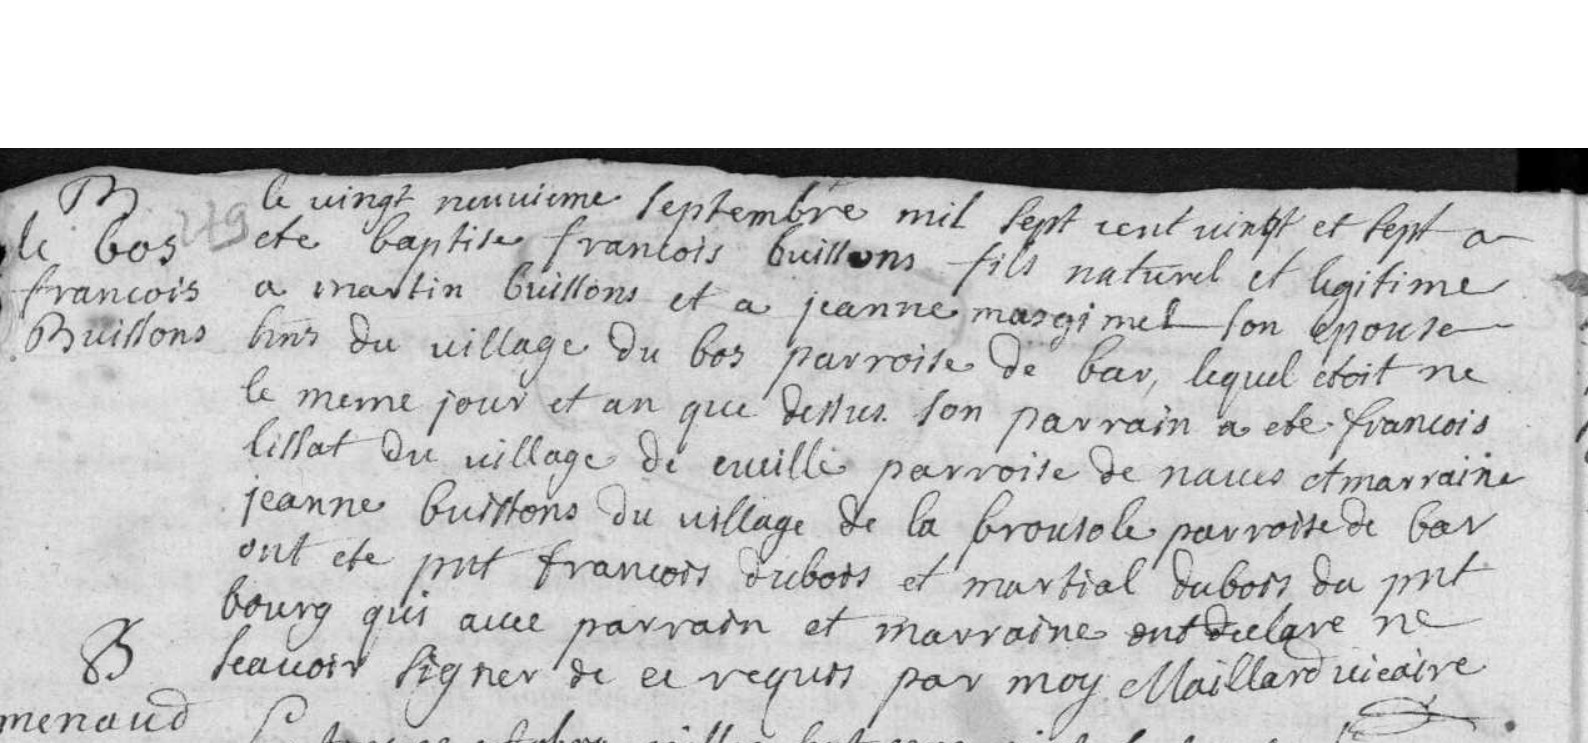 B
le bos
francois
Buissons
249
le vingt neuvieme septembre mil sept cent vingt et sept a
ete baptise francois buissons fils naturel et legitime
a martin buissons et a jeanne margimel son epouse
hns du village du bos parroise de bar, lequel etoit ne
le meme jour et an que dessus son parrain a ete francois
lissat du village de eueille parroise de naues et marraine
jeanne buissons du village de la brousole parroise de bar
ont ete pnt francois dubois et martial dubois du pnt
bourg qui auec parrain et marraine ont declare ne
scauoir signer de ce requis par moy Maillard vicaire
B
menaud